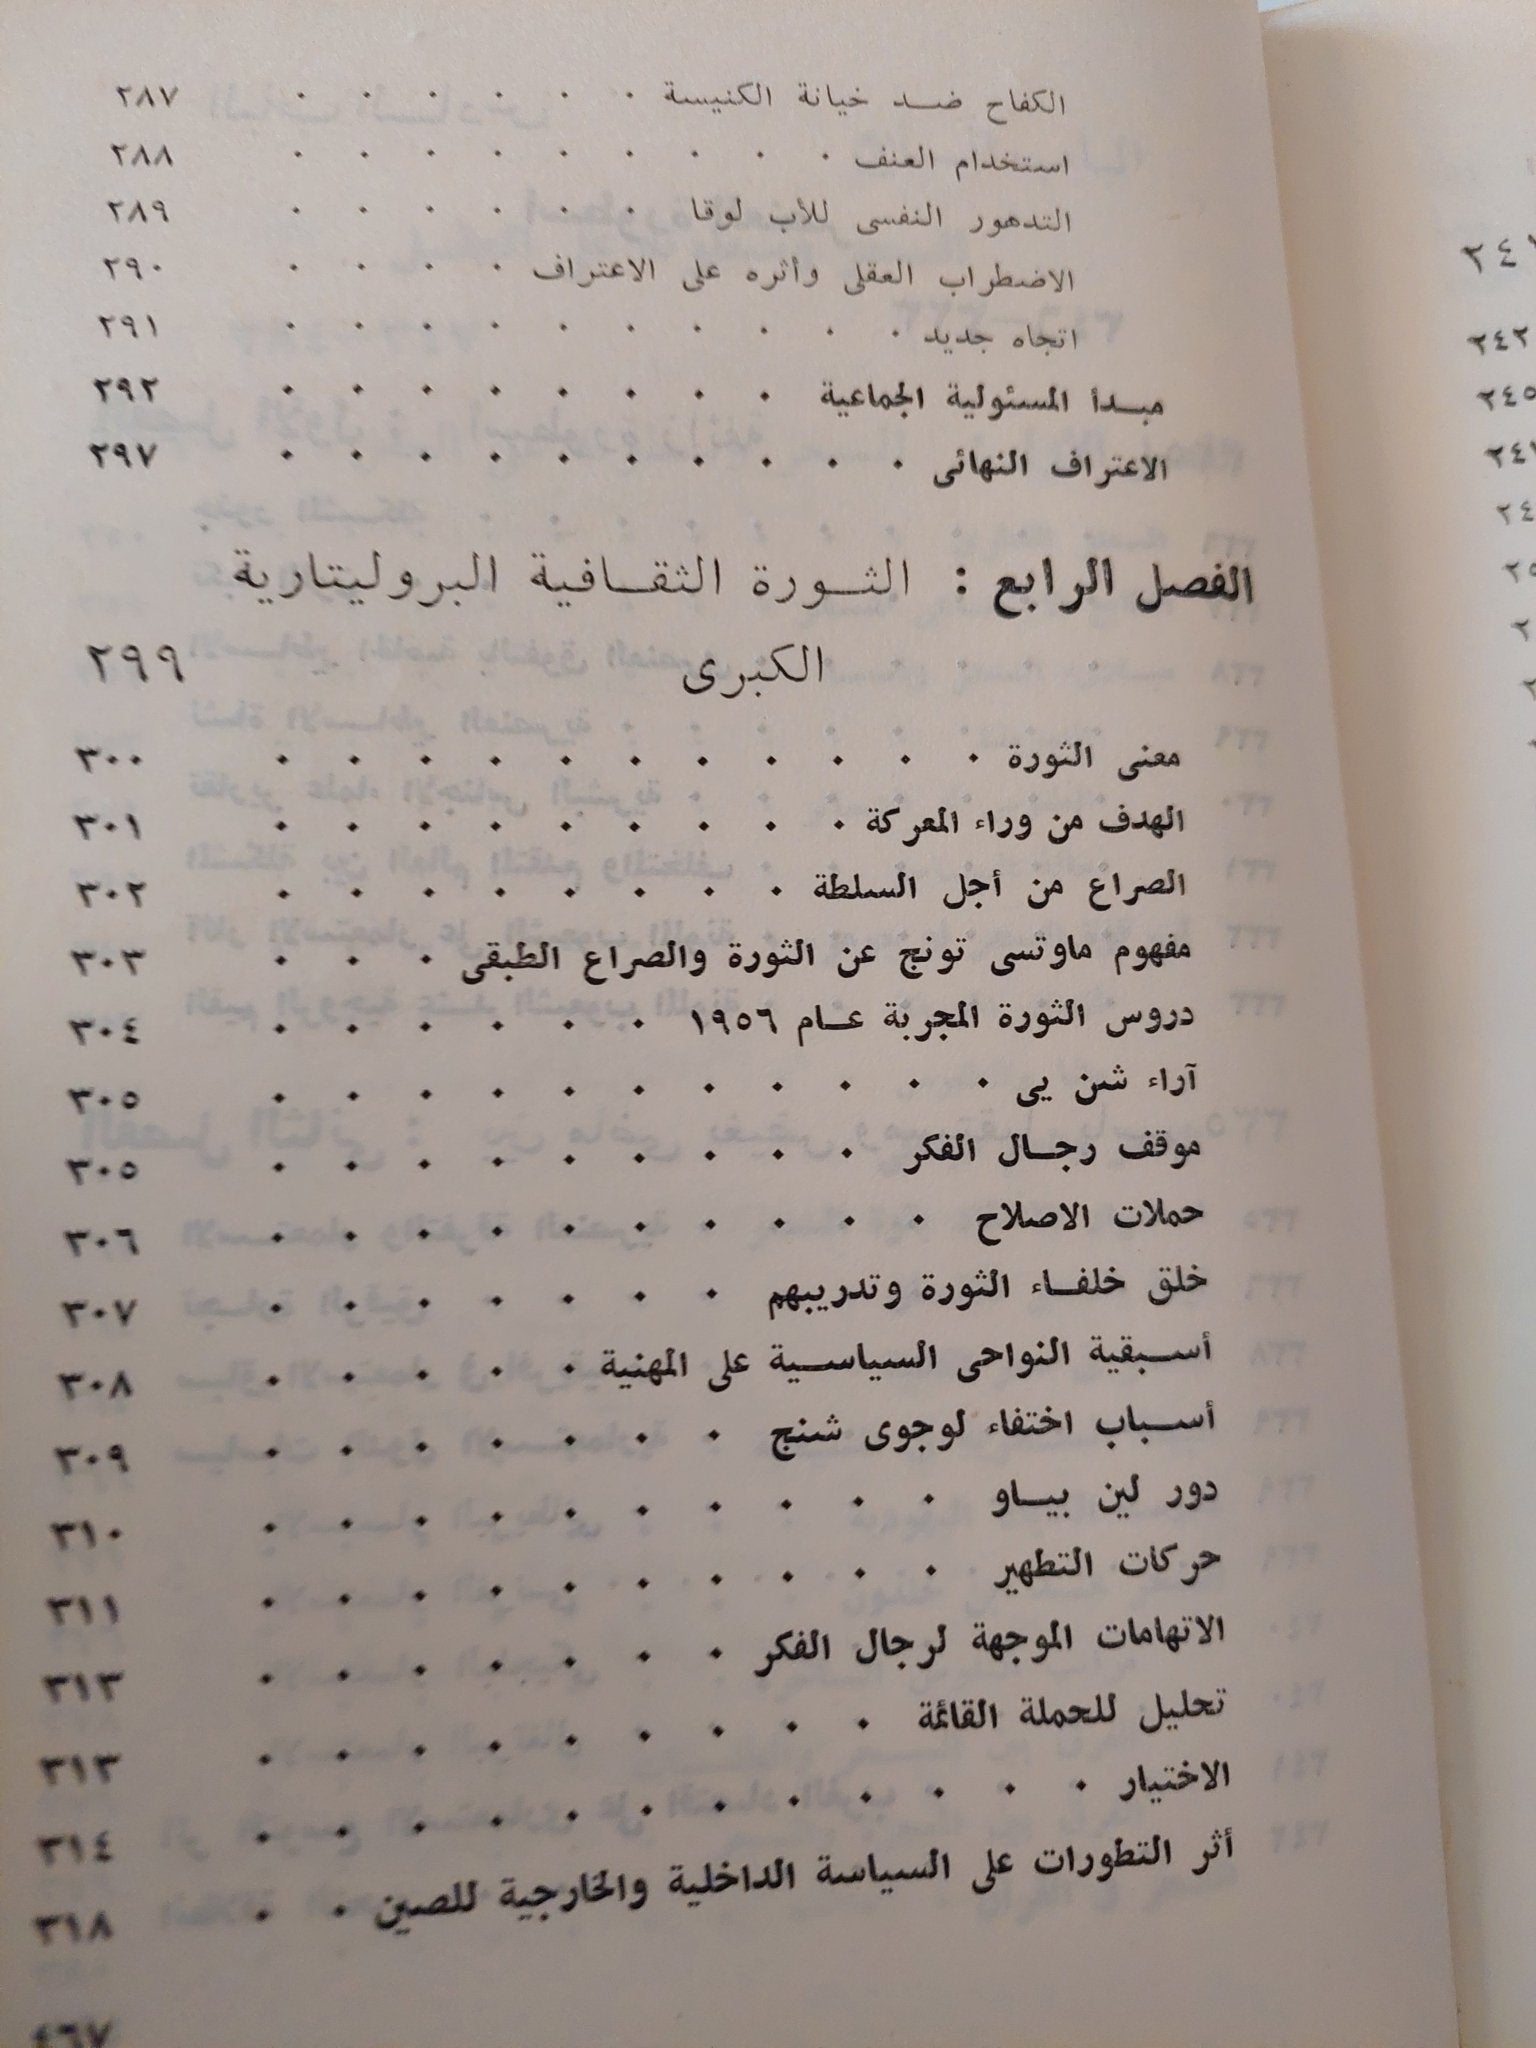 الكفاح ضد خيانة الكنيسة . . . . . . ٢٨٧
استخدام العنف . . . . . . . . . ٢٨٨
التدهور النفسى للأب لوقا . . . . . . ٢٨٩
الاضطراب العقلى وأثره على الاعتراف . . . . ٢٩٠
اتجاه جديد . . . . . . . . . . ٢٩١
مبدأ المسئولية الجماعية . . . . . . . . ٢٩٢
الاعتراف النهائى . . . . . . . . . . ٢٩٧
الفصل الرابع : الثورة الثقافية البروليتارية
الكبرى ٢٩٩
معنى الثورة . . . . . . . . . . . ٣٠٠
الهدف من وراء المعركة . . . . . . . . . ٣٠١
الصراع من أجل السلطة . . . . . . . . ٣٠٢
مفهوم ماوتسى تونج عن الثورة والصراع الطبقى . . . ٣٠٣
دروس الثورة المجربة عام ١٩٥٦ . . . . . . ٣٠٤
آراء شن يى . . . . . . . . . . . ٣٠٥
موقف رجال الفكر . . . . . . . . . ٣٠٥
حملات الاصلاح . . . . . . . . . . ٣٠٦
خلق خلفاء الثورة وتدريبهم . . . . . . . ٣٠٧
أسبقية النواحى السياسية على المهنية . . . . . ٣٠٨
أسباب اختفاء لوجوى شنج . . . . . . . ٣٠٩
دور لين بياو . . . . . . . . . . ٣١٠
حركات التطهير . . . . . . . . . . ٣١١
الاتهامات الموجهة لرجال الفكر . . . . . . . ٣١٣
تحليل للحملة القائمة . . . . . . . . . ٣١٣
الاختيار . . . . . . . . . . . . ٣١٤
أثر التطورات على السياسة الداخلية والخارجية للصين . . ٣١٨
٤٦٧
٢٤٢
٢٤٥